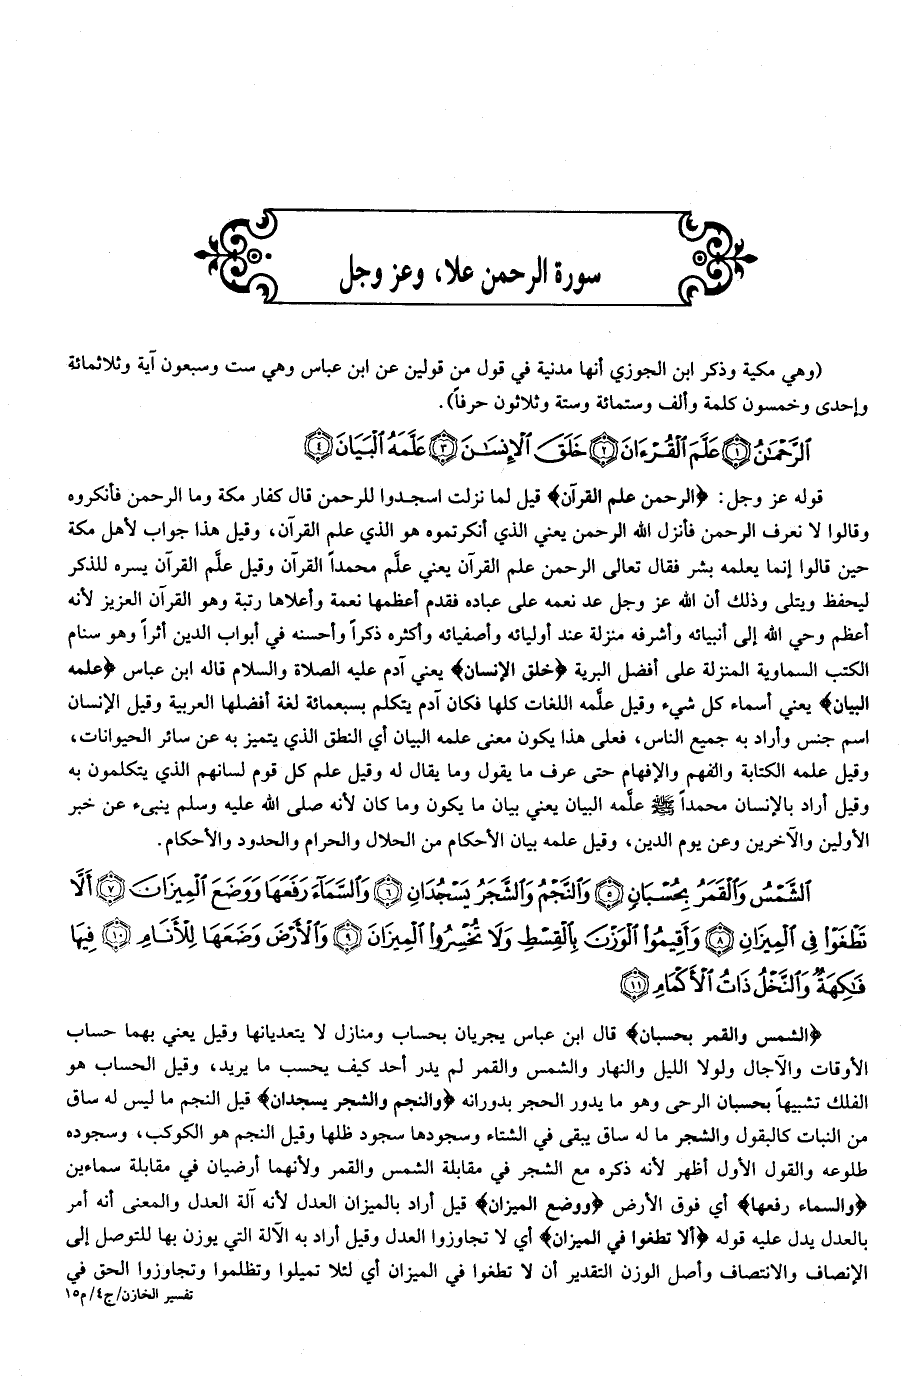 سورة الرحمن علا، وعز وجل
(وهي مكية وذكر ابن الجوزي أنها مدنية في قول من قولين عن ابن عباس وهي ست وسبعون آية وثلاثمائة
وإحدى وخمسون كلمة وألف وستمائة وستة وثلاثون حرفاً).
الرَّحْمَٰنُ ١ عَلَّمَ الْقُرْءَانَ ٢ خَلَقَ الْإِنسَٰنَ ٣ عَلَّمَهُ الْبَيَانَ ٤
قوله عز وجل: ﴿الرحمن علم القرآن﴾ قيل لما نزلت اسجدوا للرحمن قال كفار مكة وما الرحمن فأنكروه
وقالوا لا نعرف الرحمن فأنزل الله الرحمن يعني الذي أنكرتموه هو الذي علم القرآن، وقيل هذا جواب لأهل مكة
حين قالوا إنما يعلمه بشر فقال تعالى الرحمن علم القرآن يعني علَّم محمداً القرآن وقيل علَّم القرآن يسره للذكر
ليحفظ ويتلى وذلك أن الله عز وجل عد نعمه على عباده فقدم أعظمها نعمة وأعلاها رتبة وهو القرآن العزيز لأنه
أعظم وحي الله إلى أنبيائه وأشرفه منزلة عند أوليائه وأصفيائه وأكثره ذكراً وأحسنه في أبواب الدين أثراً وهو سنام
الكتب السماوية المنزلة على أفضل البرية ﴿خلق الإنسان﴾ يعني آدم عليه الصلاة والسلام قاله ابن عباس ﴿علمه
البيان﴾ يعني أسماء كل شيء وقيل علَّمه اللغات كلها فكان آدم يتكلم بسبعمائة لغة أفضلها العربية وقيل الإنسان
اسم جنس وأراد به جميع الناس، فعلى هذا يكون معنى علمه البيان أي النطق الذي يتميز به عن سائر الحيوانات،
وقيل علمه الكتابة والفهم والإفهام حتى عرف ما يقول وما يقال له وقيل علم كل قوم لسانهم الذي يتكلمون به
وقيل أراد بالإنسان محمداً ﷺ علَّمه البيان يعني بيان ما يكون وما كان لأنه صلى الله عليه وسلم ينبىء عن خبر
الأولين والآخرين وعن يوم الدين، وقيل علمه بيان الأحكام من الحلال والحرام والحدود والأحكام.
الشَّمْسُ وَالْقَمَرُ بِحُسْبَانٍ ٥ وَالنَّجْمُ وَالشَّجَرُ يَسْجُدَانِ ٦ وَالسَّمَآءَ رَفَعَهَا وَوَضَعَ الْمِيزَانَ ٧ أَلَّا
تَطْغَوْا فِي الْمِيزَانِ ٨ وَأَقِيمُوا الْوَزْنَ بِالْقِسْطِ وَلَا تُخْسِرُوا الْمِيزَانَ ٩ وَالْأَرْضَ وَضَعَهَا لِلْأَنَامِ ١٠ فِيهَا
فَٰكِهَةٌ وَالنَّخْلُ ذَاتُ الْأَكْمَامِ ١١
﴿الشمس والقمر بحسبان﴾ قال ابن عباس يجريان بحساب ومنازل لا يتعديانها وقيل يعني بهما حساب
الأوقات والآجال ولولا الليل والنهار والشمس والقمر لم يدر أحد كيف يحسب ما يريد، وقيل الحساب هو
الفلك تشبيهاً بحسبان الرحى وهو ما يدور الحجر بدورانه ﴿والنجم والشجر يسجدان﴾ قيل النجم ما ليس له ساق
من النبات كالبقول والشجر ما له ساق يبقى في الشتاء وسجودها سجود ظلها وقيل النجم هو الكوكب، وسجوده
طلوعه والقول الأول أظهر لأنه ذكره مع الشجر في مقابلة الشمس والقمر ولأنهما أرضيان في مقابلة سماءين
﴿والسماء رفعها﴾ أي فوق الأرض ﴿ووضع الميزان﴾ قيل أراد بالميزان العدل لأنه آلة العدل والمعنى أنه أمر
بالعدل يدل عليه قوله ﴿ألا تطغوا في الميزان﴾ أي لا تجاوزوا العدل وقيل أراد به الآلة التي يوزن بها للتوصل إلى
الإنصاف والانتصاف وأصل الوزن التقدير أن لا تطغوا في الميزان أي لئلا تميلوا وتظلموا وتجاوزوا الحق في
تفسير الخازن/ج٤/م١٥